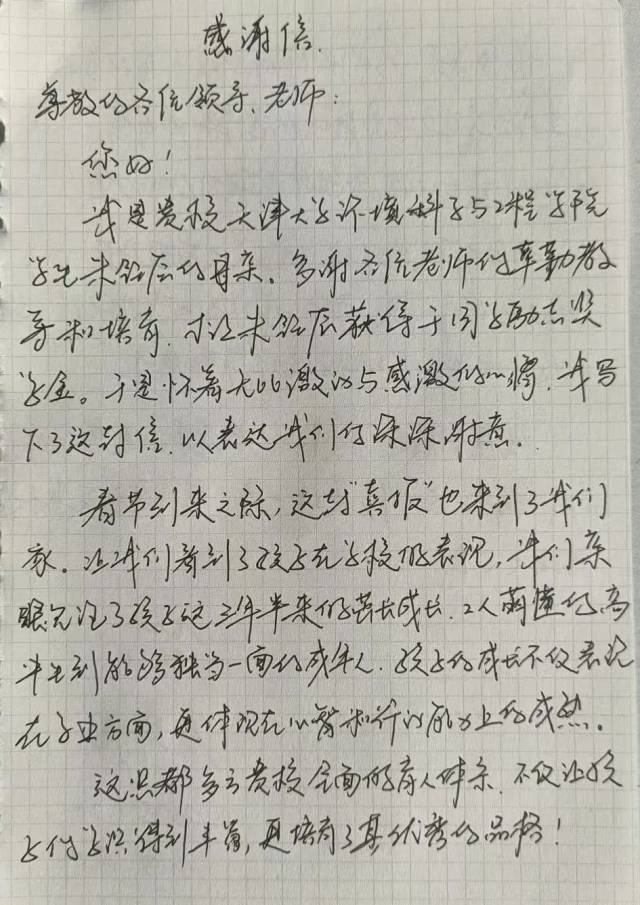 感谢信.
尊敬的各位领导、老师：
您好！
我是贵校天津大学环境科学与工程学院
学生朱钰辰的母亲。多谢各位老师的辛勤教
导和培育，才让朱钰辰获得于同学励志奖
学金。于是怀着无比激动与感激的心情，我写
下了这封信，以表达我们的深深谢意。
春节到来之际，这封“喜报”也来到了我们
家。让我们看到了孩子在学校的表现，我们亲
眼见证了孩子这三年半来的茁长成长，从萌懂的高
中生到能够独当一面的成年人，孩子的成长不仅表现
在学业方面，更体现在心智和行为能力上的成熟。
这些都多亏贵校全面的育人体系，不仅让孩
子的学识得到丰富，更培育了其优秀的品格！